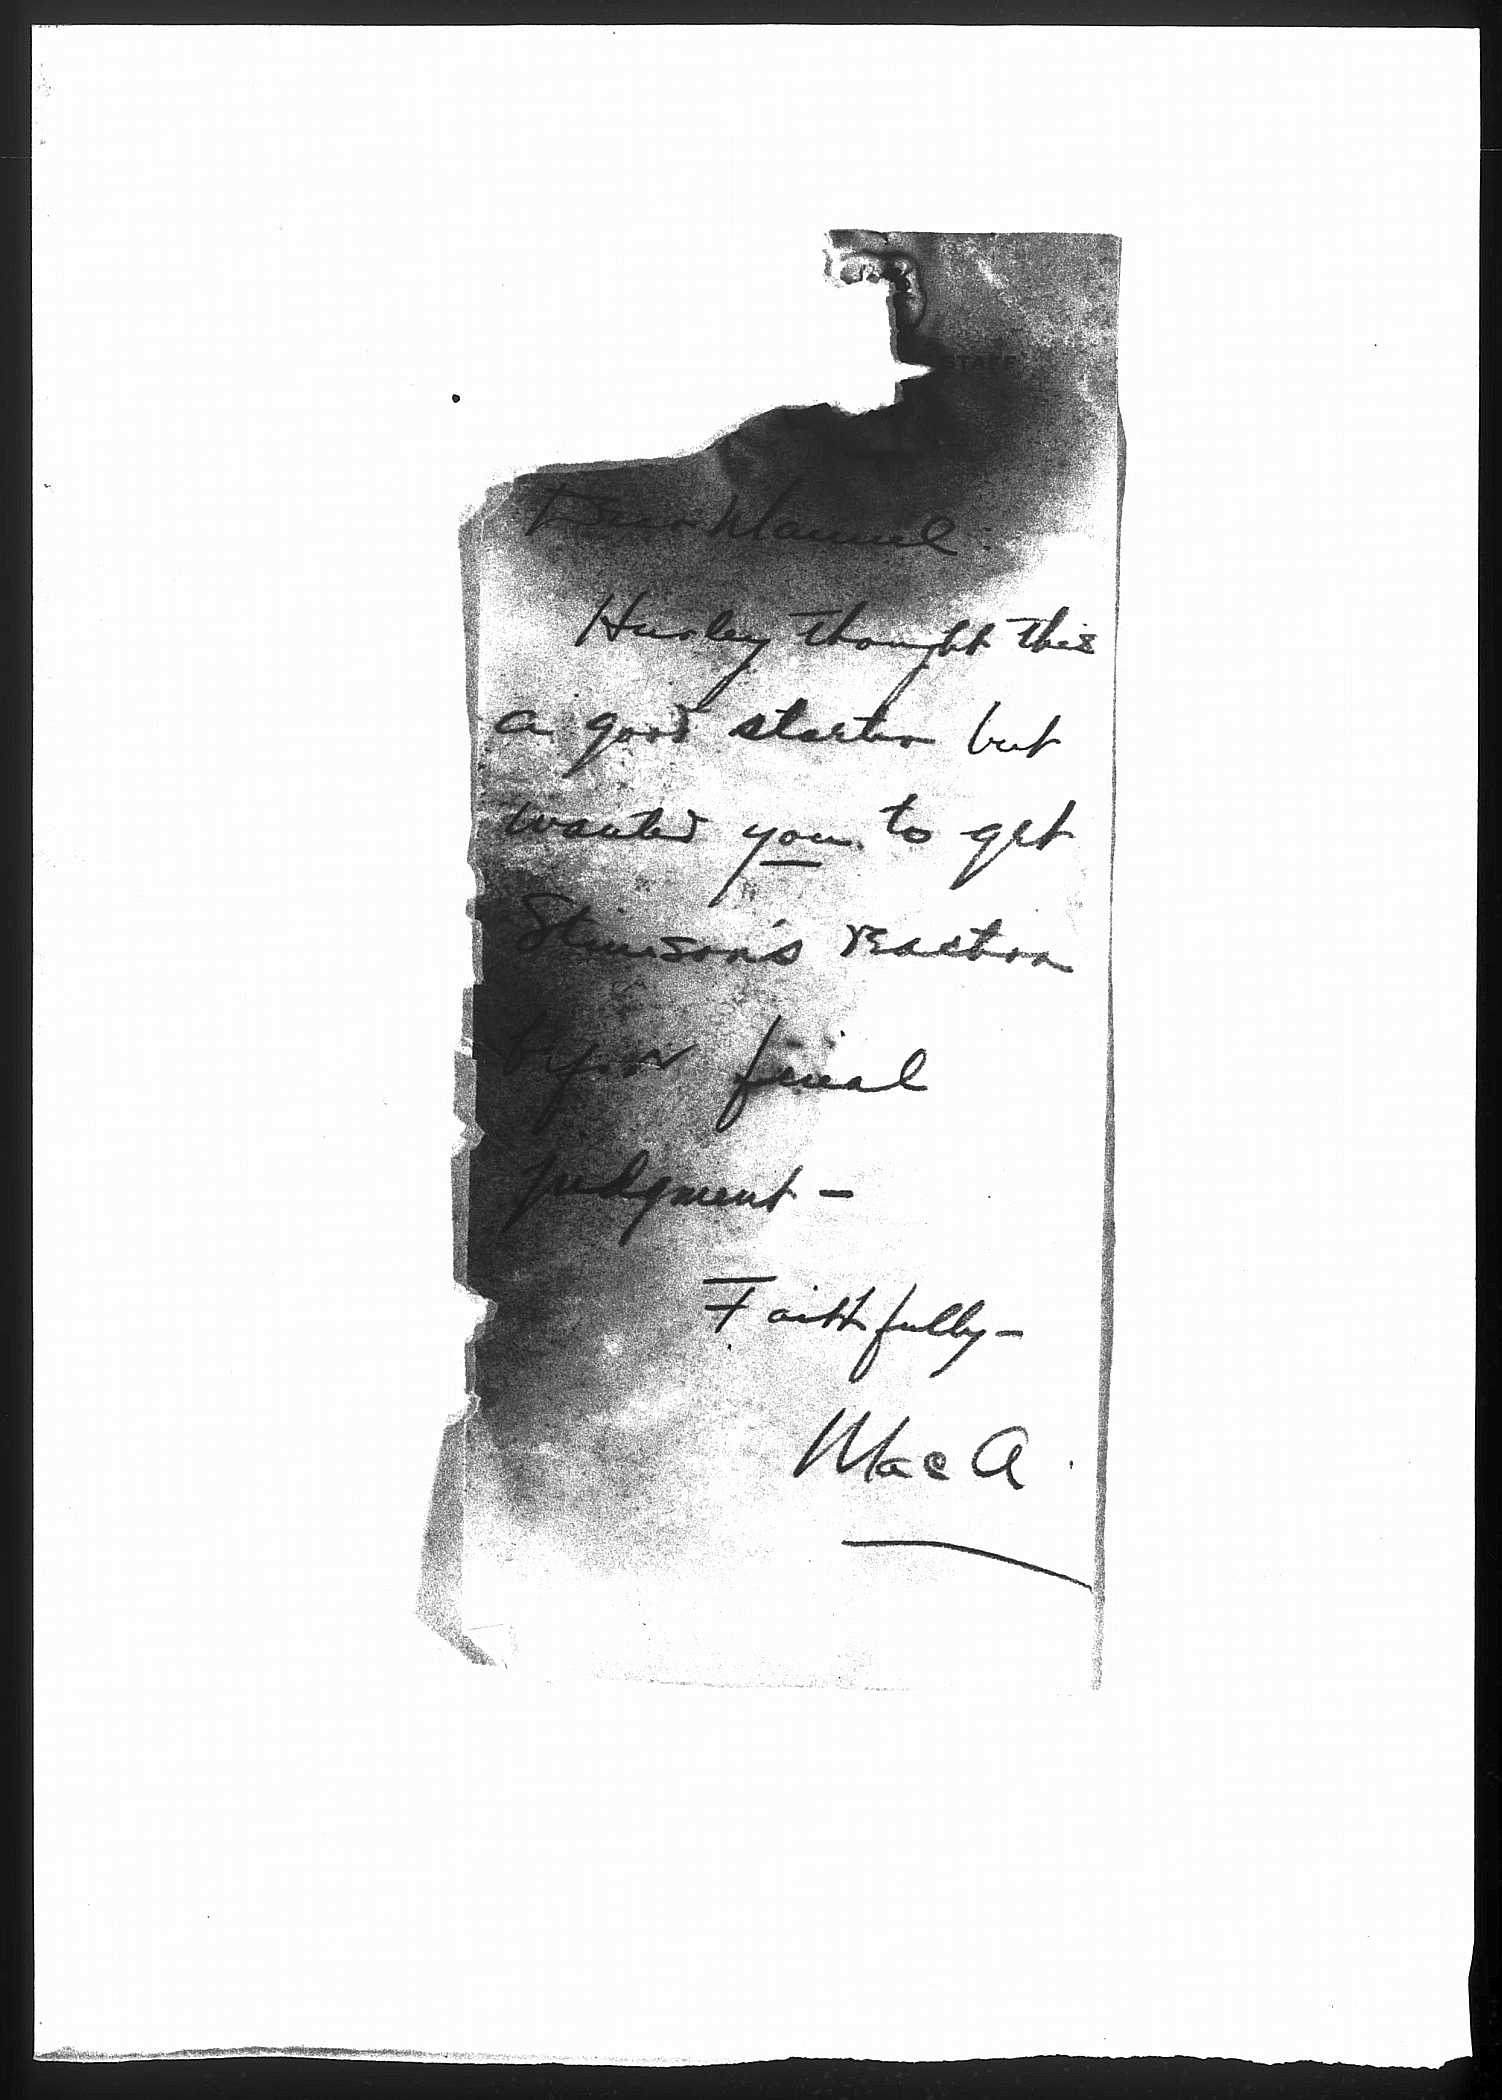 STAFF
Dear Manuel:
Hurley thought this
a good starter but
wanted you to get
Stimson's reaction
before final
judgment —
Faithfully —
Mac A.